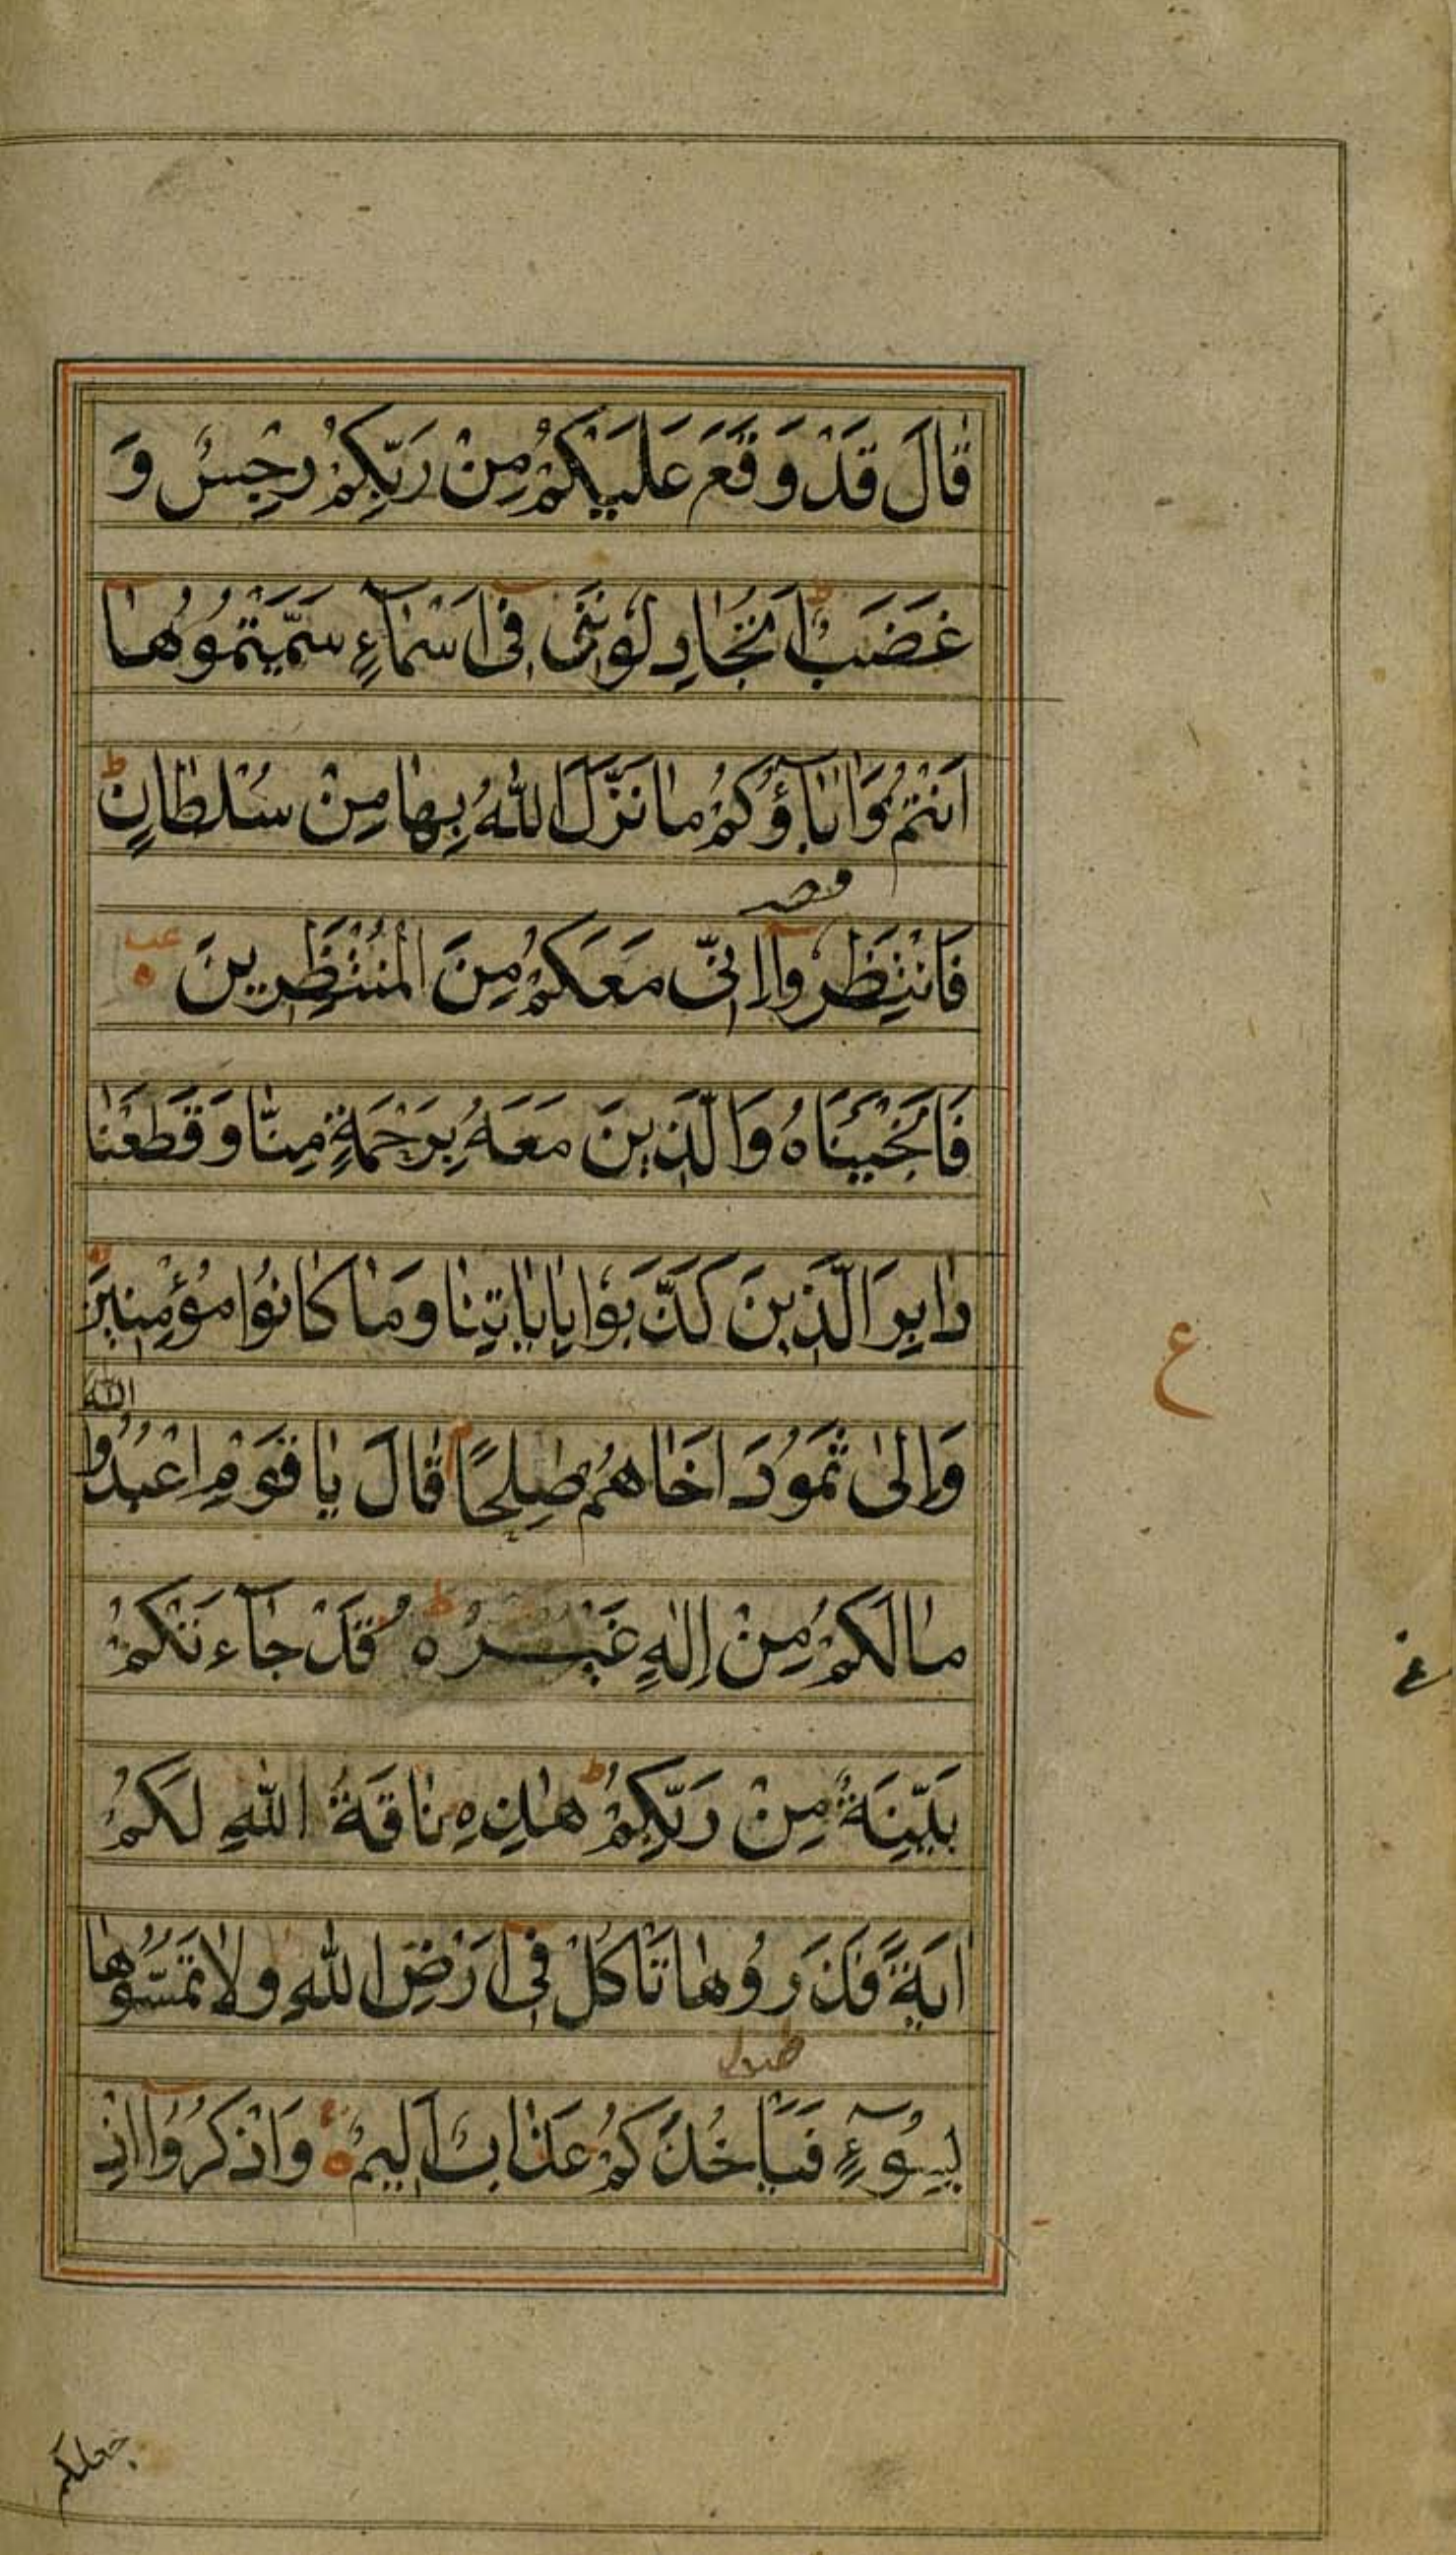 قَالَ قَدْ وَقَعَ عَلَيْكُمْ مِنْ رَبِّكُمْ رِجْسٌ وَ
غَضَبٌ اَتُجَادِلُونَنِى فِى اَسْمَآءٍ سَمَّيْتُمُوهَا
ط
اَنْتُمْ وَاٰبَآؤُكُمْ مَا نَزَّلَ اللّٰهُ بِهَا مِنْ سُلْطَانٍ ط
فَانْتَظِرُوآ اِنِّى مَعَكُمْ مِنَ الْمُنْتَظِرِينَ
عب
فَاَنْجَيْنَاهُ وَالَّذِينَ مَعَهُ بِرَحْمَةٍ مِنَّا وَقَطَعْنَا
دَابِرَ الَّذِينَ كَذَّبُوا بِاٰيَاتِنَا وَمَا كَانُوا مُؤْمِنِينَ
ع
وَاِلٰى ثَمُودَ اَخَاهُمْ صٰلِحًا قَالَ يَا قَوْمِ اعْبُدُوا
اللّٰهَ
مَا لَكُمْ مِنْ اِلٰهٍ غَيْرُهُ ط قَدْ جَآءَتْكُمْ
بَيِّنَةٌ مِنْ رَبِّكُمْ ط هٰذِهِ نَاقَةُ اللّٰهِ لَكُمْ
اٰيَةً فَذَرُوهَا تَاْكُلْ فِى اَرْضِ اللّٰهِ وَلَا تَمَسُّوهَا
بِسُوٓءٍ فَيَاْخُذَكُمْ عَذَابٌ اَلِيمٌ وَاذْكُرُوآ اِذْ
جعلكم